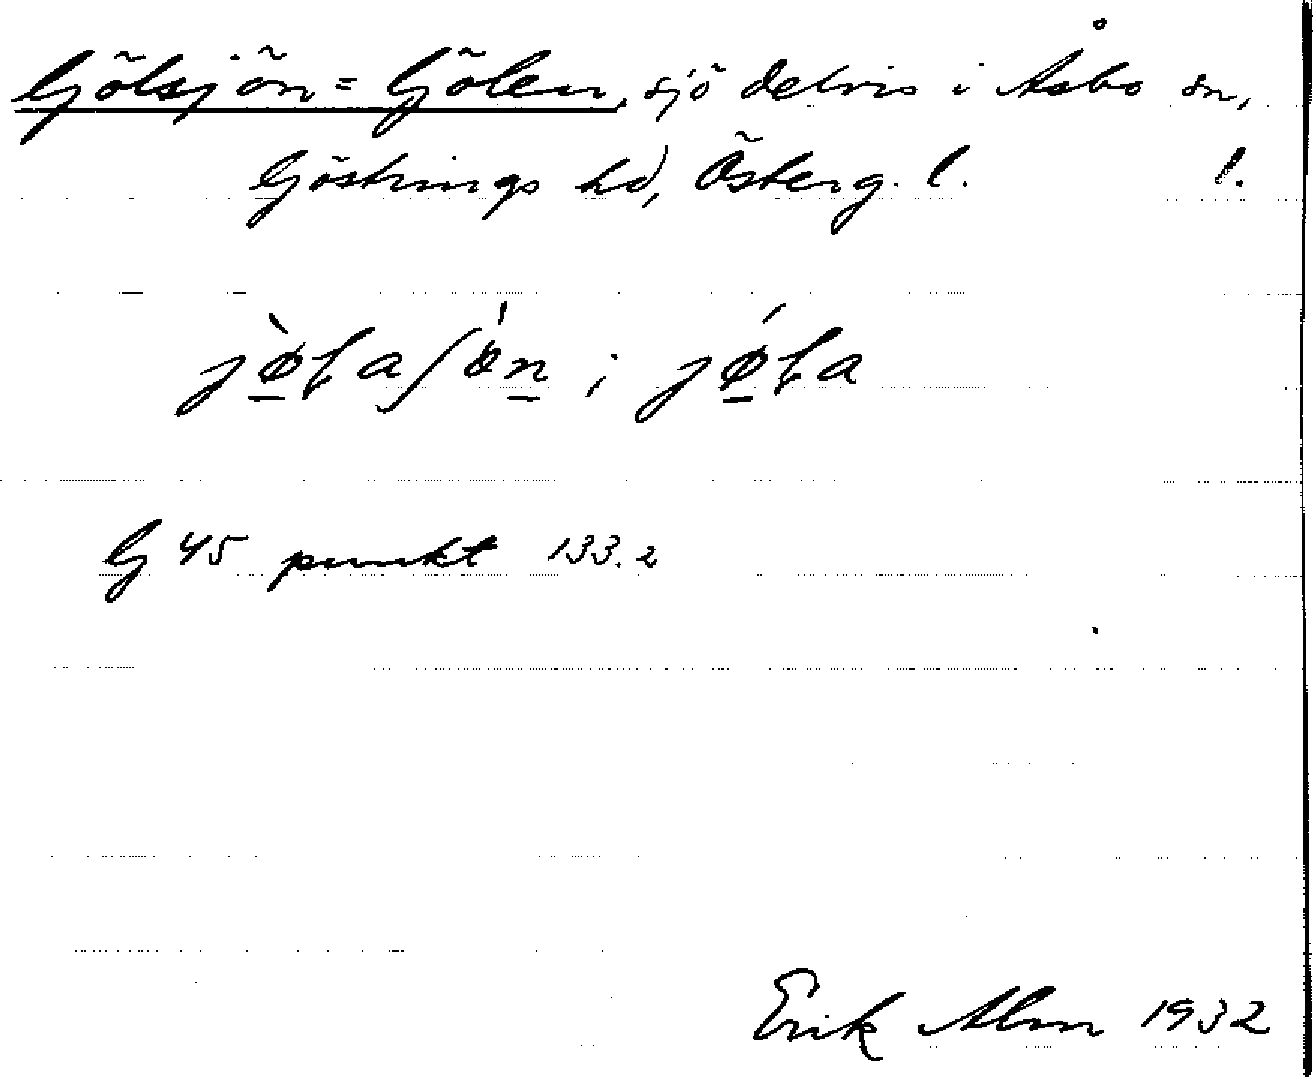 Gölsjön = Gölen, sjö delvis i Åsbo sn,
Göstrings hd, Österg. l. 1.
jø̀ɬaʃǿn ; jǿɬa
G 45 punkt 133.2
Erik Alm 1932